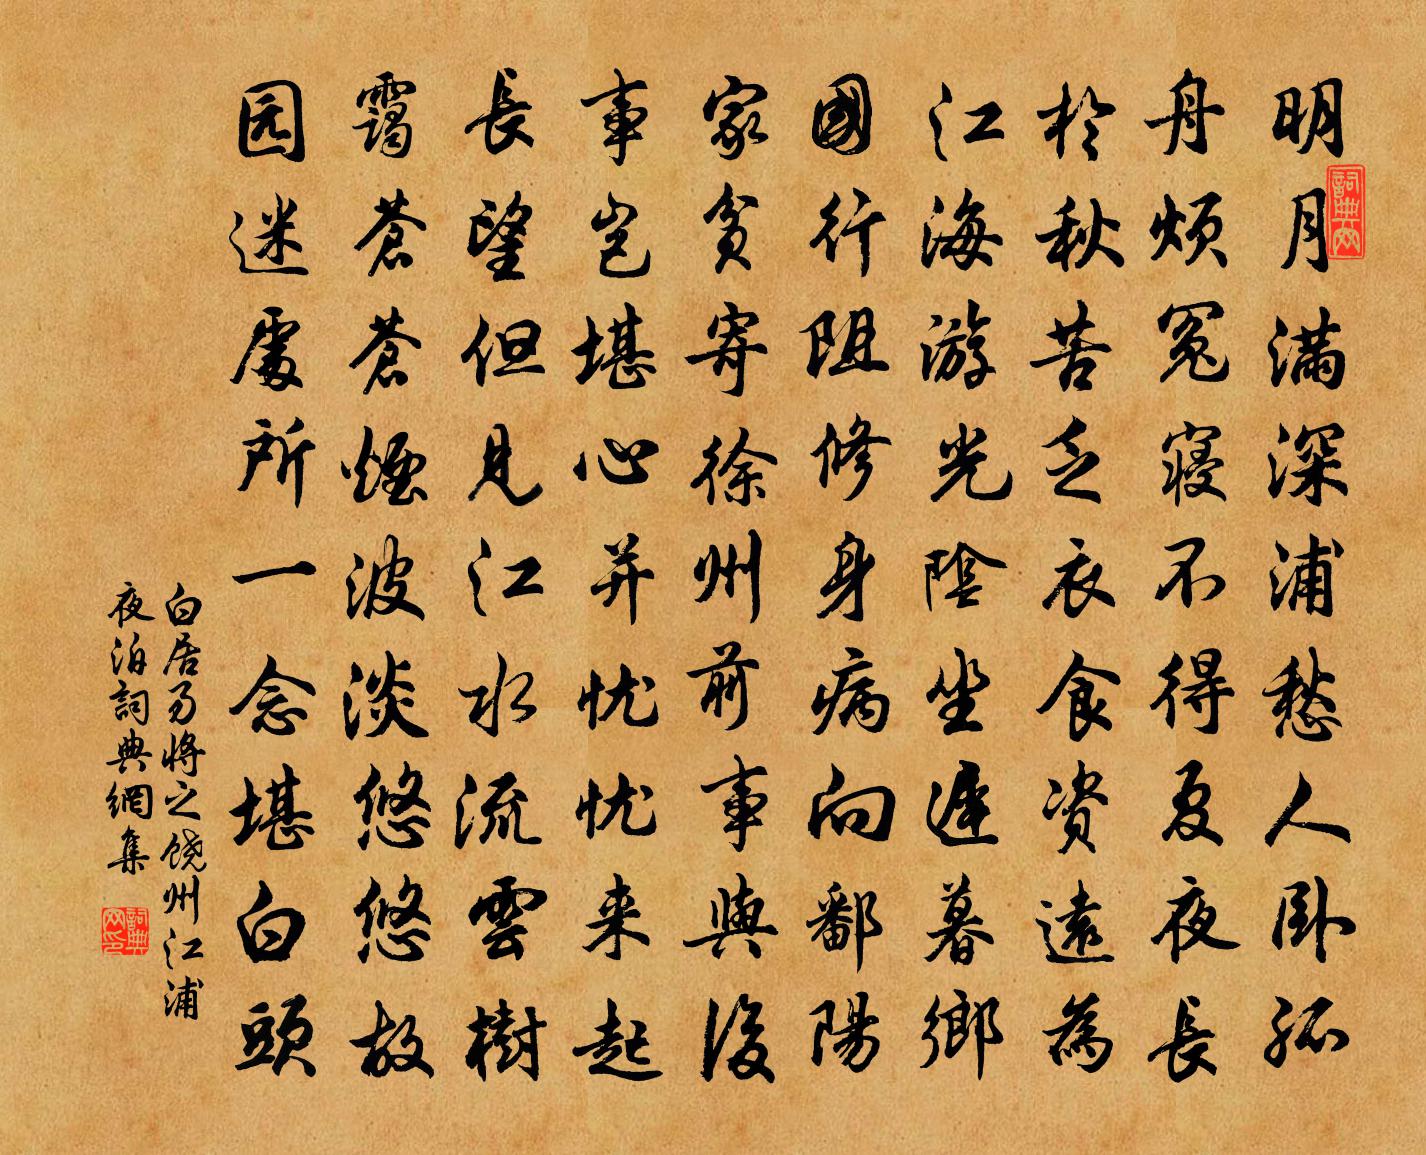 明月满深浦愁人卧孤
舟烦冤寝不得夏夜長
於秋苦乏衣食资遠為
江海游光陰坐遲暮鄉
國行阻修身病向鄱陽
家贫寄徐州前事與後
事岂堪心并忧忧来起
長望但見江水流雲樹
靄蒼蒼煙波淡悠悠故
园迷處所一念堪白頭
白居易将之饶州江浦
夜泊詞典網集
詞典网
詞典网印